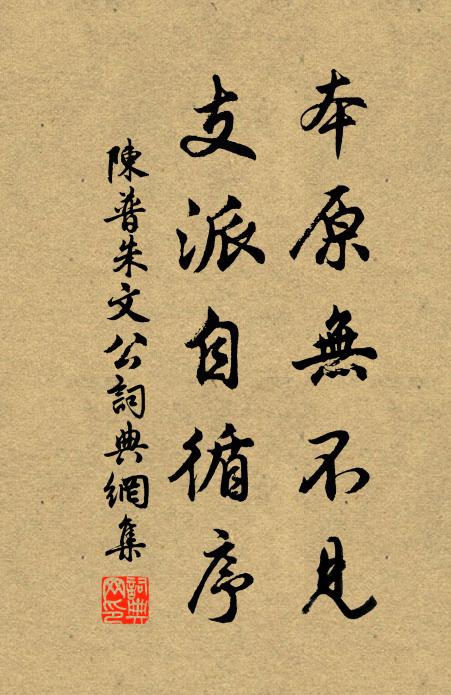 本原無不見
支派自循序
陳普朱文公詞典網集
詞典网印